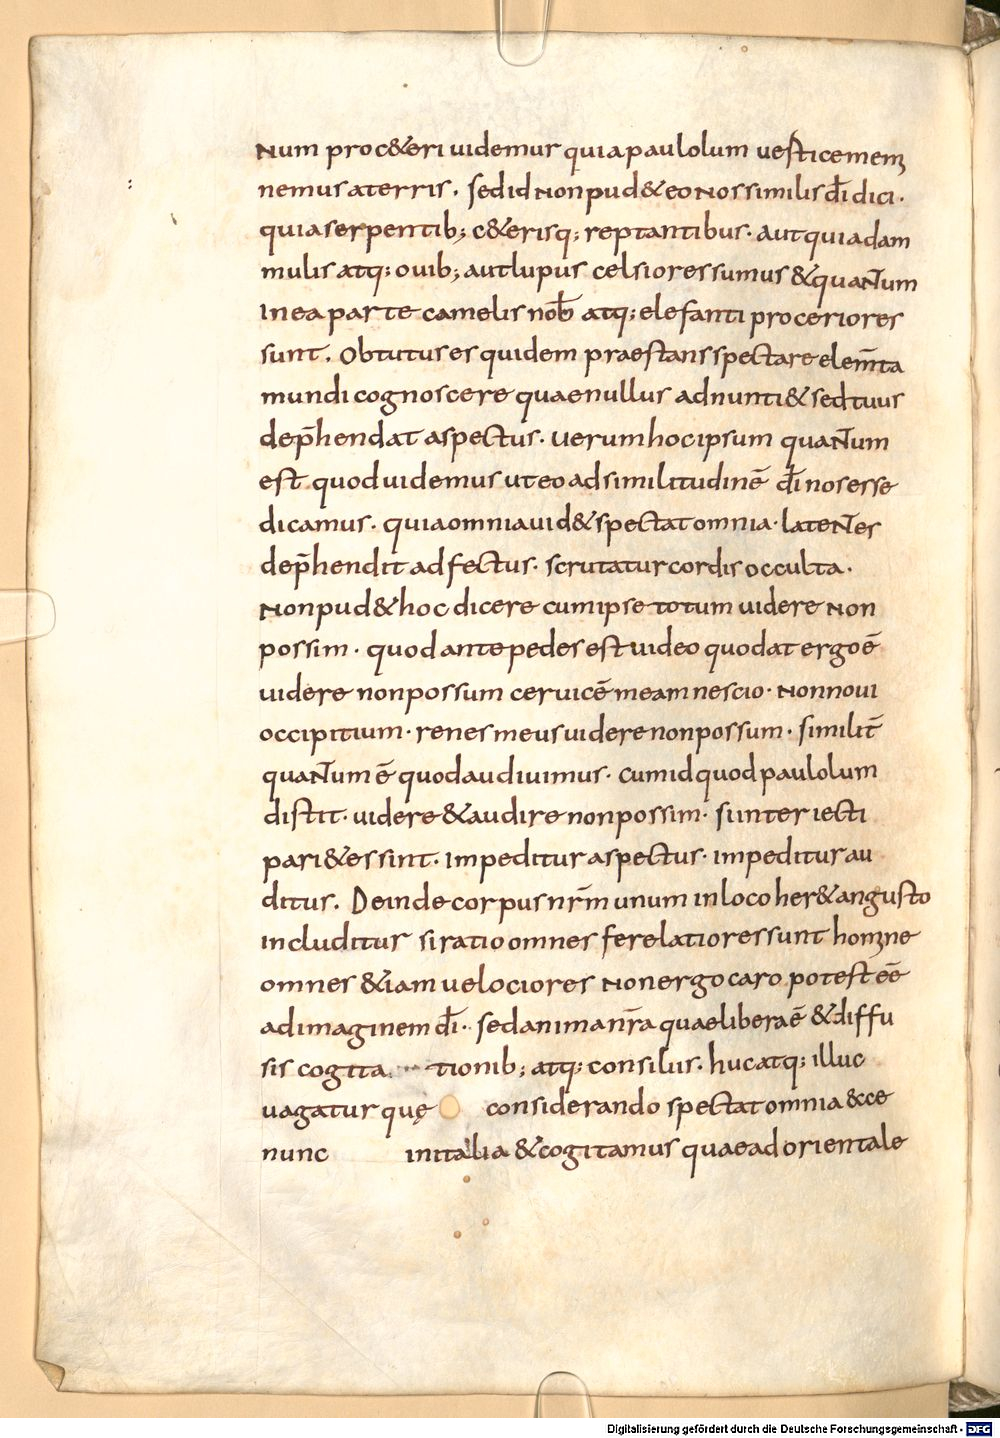 num proc&eri uidemur quia paulolum uesticem em
nemus a terris. sed id non pud& eo nos similis dī dici.
quia serpentib; c&erisq; reptantibus. aut quia dam
mulis atq; ouib; aut lupus celsiores sumus & quantum
in ea parte camelis nob̄ atq; elefanti proceriores
sunt. Obtutus es quidem praestans spectare elem̄ta
mundi cognoscere quae nullus adnunti& sed tuus
dep̄hendat aspectus. uerum hoc ipsum quantum
est quod uidemus ut eo ad similitudinē dī nos esse
dicamus. quia omnia uid& spectat omnia. latentes
dep̄hendit adfectus. scrutatur cordis occulta.
Non pud& hoc dicere cum ipse totum uidere non
possim. quod ante pedes est uideo quod at ergo ē
uidere non possum ceruicē meam nescio. non noui
occipitium. renes meus uidere non possum. similit̄
quantum ē quod audiuimus. cum id quod paulolum
distit. uidere & audire non possim. si interiecti
pari&es sint. impeditur aspectus. impeditur au
ditus. Deinde corpus nr̄m unum in loco her& angusto
includitur si ratio omnes fere latiores sunt homne
omnes &iam uelociores non ergo caro potest eē
ad imaginem dī. sed anima nr̄a quae libera ē & diffu
sis cogita tionib; atq; consiliis. huc atq; illuc
uagatur quę considerando spectat omnia &cce
nunc in italia & cogitamus quae ad orientale
Digitalisierung gefördert durch die Deutsche Forschungsgemeinschaft - DFG